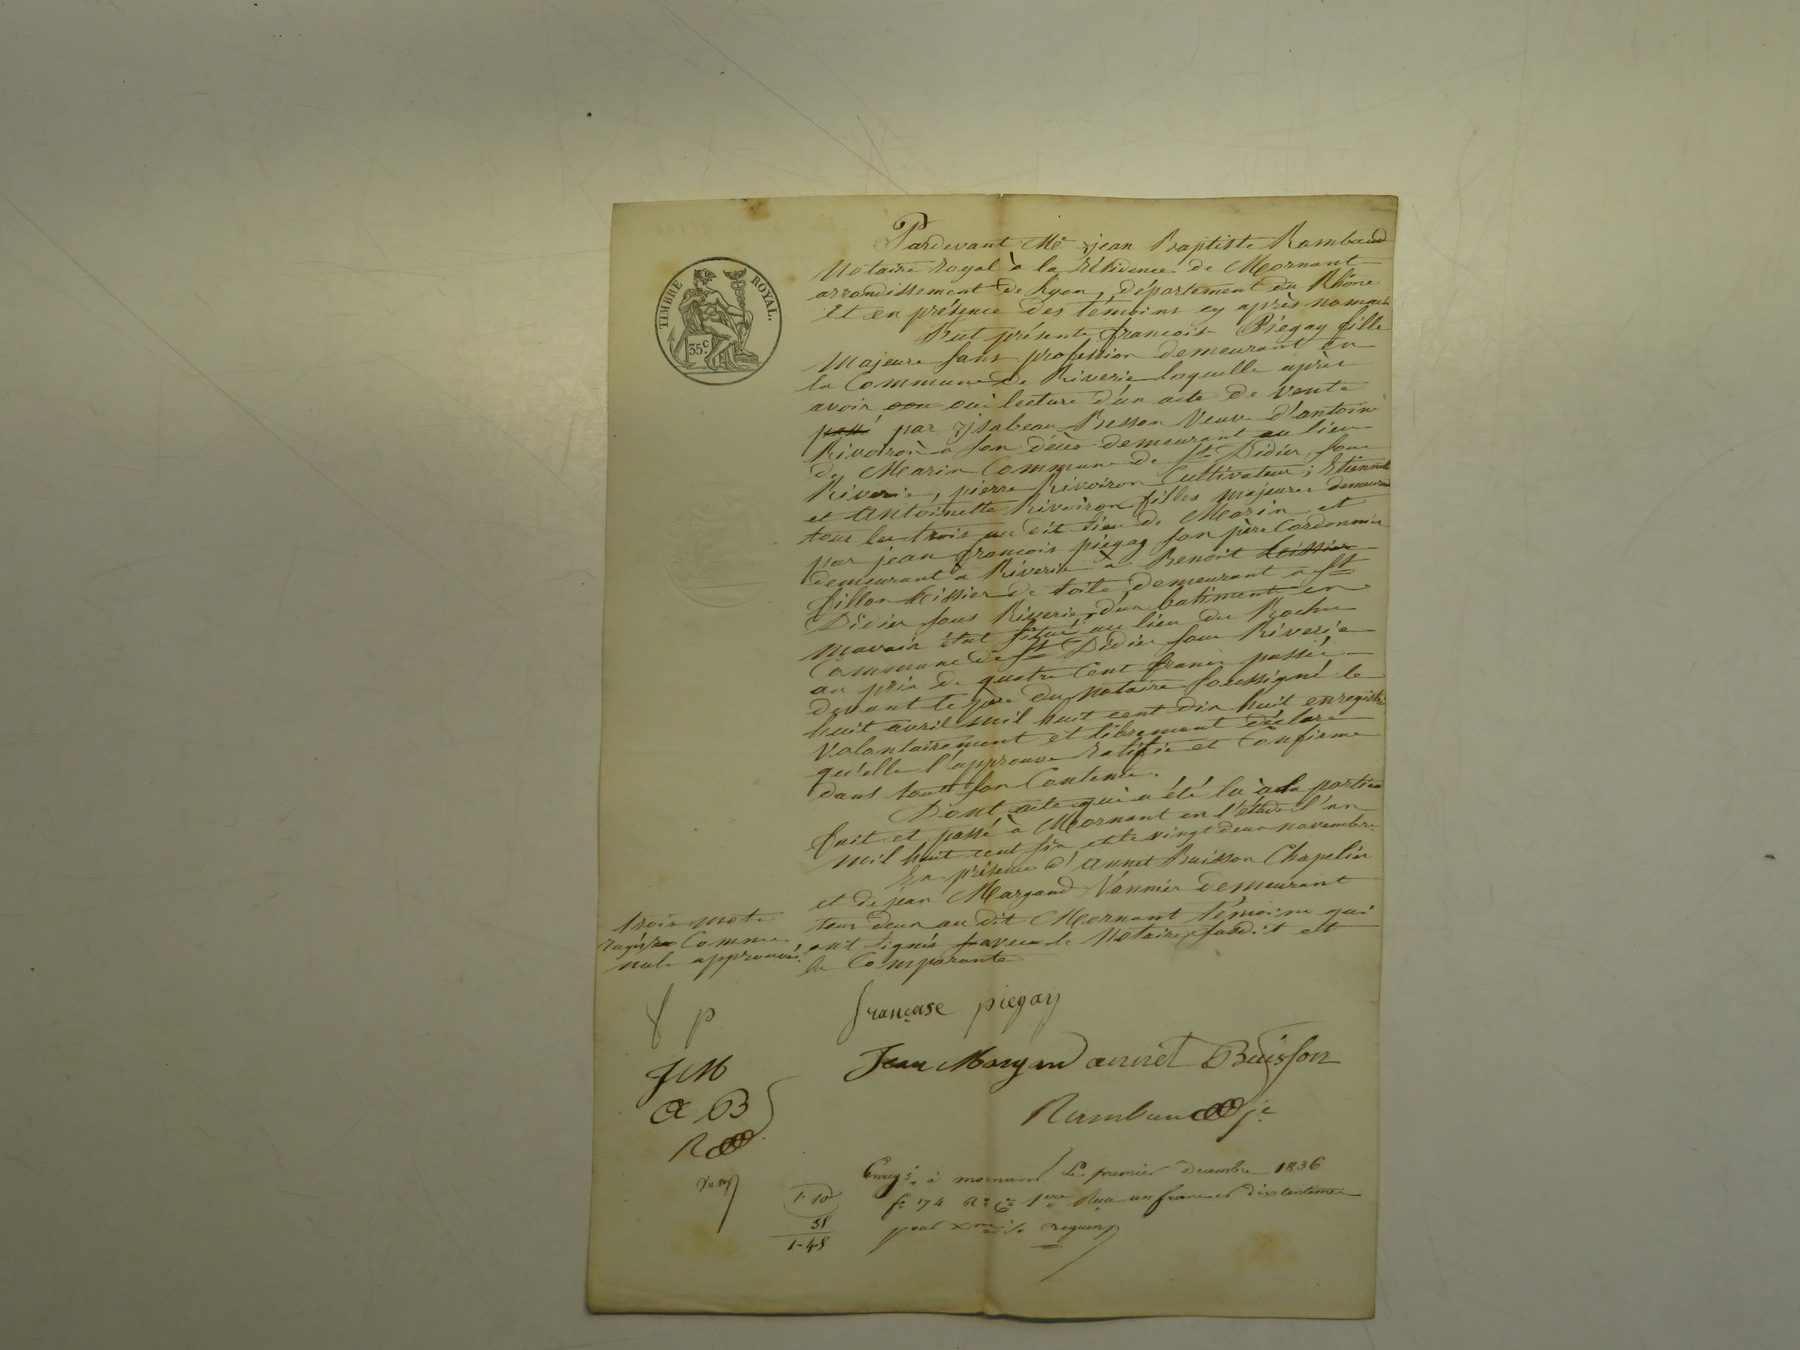 TIMBRE ROYAL.
35.c
Pardevant Me jean Baptiste Rambaud
Notaire royal à la résidence de Mornant
arrondissement de Lyon, département du Rhône
et en présence des témoins cy après nommés
fut présente francoise Piégay fille
Majeure sans profession demeurant en
la Commune de Riverie laquelle après
avoir ouï lecture d'un acte de vente
passé par ysabeau Besson Veuve d'antoine
Rivoiron à son décès demeurant au lieu
du Marin Commune de St Didier sous
Riverie, pierre Rivoiron Cultivateur; Etiennette
et Antoinette Rivoiron filles majeures demeurant
tous les trois au dit lieu de Marin et
par jean françois piégay son père Cordonnier
demeurant à Riverie à Benoit teissier
fillon teissier de toile demeurant à St
Didier sous Riverie, d'un batiment en
mauvais état situé au lieu du Rochu
Commune de St Didier sous Riverie
au prix de quatre Cent francs passée
devant le père du notaire soussigné le
huit avril mil huit cent dix huit enregistré
Volontairement et librement déclare
qu'elle l'approuve ratifie et Confirme
dans tout son Contenu.
Dont acte qui a été lu à la partie
fait et passé à Mornant en l'étude l'an
mil huit cent six et le vingt deux novembre
En présence d'annet Buisson Chapelier
et de jean Margand Vannier demeurant
tous deux au dit Mornant témoins qui
ont signés avec le Notaire susdit et
la Comparante
trois mots
rayés Comme
nuls approuvés.
f P
JM
a B
R
françase piegay
Jean Margand annet Buisson
Rambaud je
Enregé. à mornant Le premier decembre 1836
fo 174 Ro Ce 1ere Reçu un franc dix centimes
pour Xme
1-10
1-48